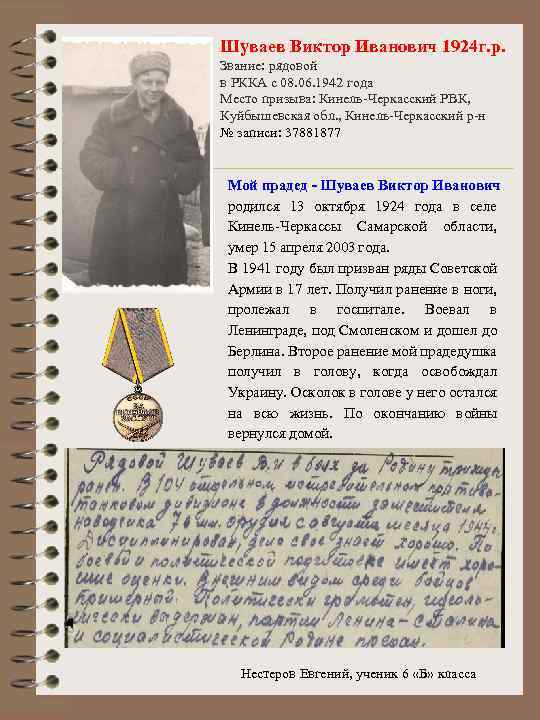 Шуваев Виктор Иванович 1924 г. р.
Звание: рядовой
в РККА с 08.06.1942 года
Место призыва: Кинель-Черкасский РВК,
Куйбышевская обл., Кинель-Черкасский р-н
№ записи: 37881877
Мой прадед - Шуваев Виктор Иванович
родился 13 октября 1924 года в селе
Кинель-Черкассы Самарской области,
умер 15 апреля 2003 года.
В 1941 году был призван ряды Советской
Армии в 17 лет. Получил ранение в ноги,
пролежал в госпитале. Воевал в
Ленинграде, под Смоленском и дошел до
Берлина. Второе ранение мой прадедушка
получил в голову, когда освобождал
Украину. Осколок в голове у него остался
на всю жизнь. По окончанию войны
вернулся домой.
СССР
ЗА
БОЕВЫЕ
ЗАСЛУГИ
Рядовой Шуваев В.И в боях за Родину трижды
ранен. В 104 отдельном истребительном противо-
танковом дивизионе в должности заместителя
наводчика 76 мм. орудия с августа месяца 1944г.
Дисциплинирован, дело свое знает хорошо. По
боевой и политической подготовке имеет хоро-
шие оценки. Внешним видом среди бойцов
примерный. Политически грамотен, идеоло-
гически выдержан, партии Ленина-Сталина
и социалистической Родине предан.
Нестеров Евгений, ученик 6 «Б» класса